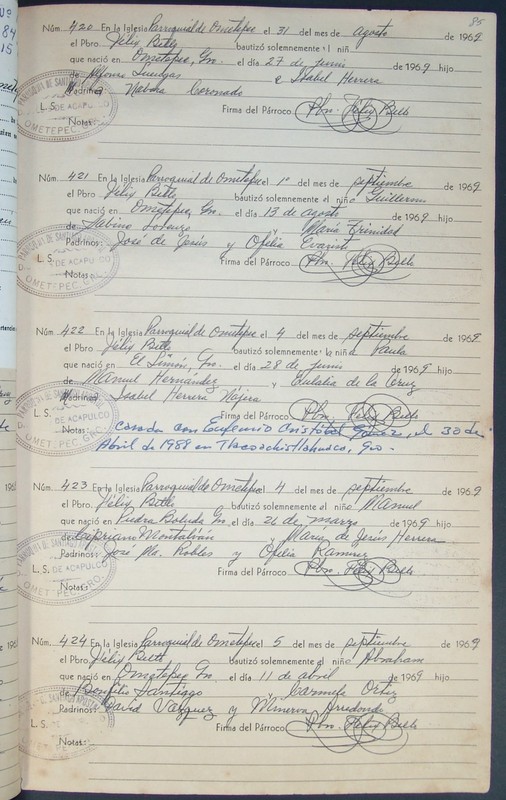 85
Núm. 420 En la Iglesia Parroquial de Ometepec el 31 del mes de agosto de 1969
el Pbro. Félix Bello bautizó solemnemente l niñ
que nació en Ometepec, Gro. el día 27 de junio de 1969 hijo
de Alfonso e Isabel Herrera
Madrina: Nabora Coronado
L. S. Firma del Párroco Pbro. Félix Bello
Notas:
Núm. 421 En la Iglesia Parroquial de Ometepec el 1° del mes de septiembre de 1969
el Pbro. Félix Bello bautizó solemnemente el niño Guillermo
que nació en Ometepec, Gro. el día 13 de agosto de 1969 hijo
de Albino Lorenzo y María Trinidad
Padrinos: José de Jesús y Ofelia Evarist
L. S. Firma del Párroco Pbro. Félix Bello
Notas:
Núm. 422 En la Iglesia Parroquial de Ometepec el 4 del mes de septiembre de 1969
el Pbro. Félix Bello bautizó solemnemente la niña Paula
que nació en El Limón, Gro. el día 28 de junio de 1969 hijo
de Manuel Hernández y Eulalia de la Cruz
Madrina: Isabel Herrera Nájera
L. S. Firma del Párroco Pbro. Félix Bello
Notas: casada con Eugenio Cristóbal Gómez, el 30 de
Abril de 1988 en Tlacoachistlahuaca, Gro.
Núm. 423 En la Iglesia Parroquial de Ometepec el 4 del mes de septiembre de 1969
el Pbro. Félix Bello bautizó solemnemente el niño Manuel
que nació en Piedra Boluda Gro. el día 26 de marzo de 1969 hijo
de Cipriano Montalván y María de Jesús Herrera
Padrinos: José Ma. Robles y Ofelia Ramírez
L. S. Firma del Párroco Pbro. Félix Bello
Notas:
Núm. 424 En la Iglesia Parroquial de Ometepec el 5 del mes de septiembre de 1969
el Pbro. Félix Bello bautizó solemnemente el niño Abraham
que nació en Ometepec Gro. el día 11 de abril de 1969 hijo
de Bonfilio Santiago y Carmela Ortiz
Padrinos: David Vázquez y Minerva Arredondo
L. S. Firma del Párroco Pbro. Félix Bello
Notas: